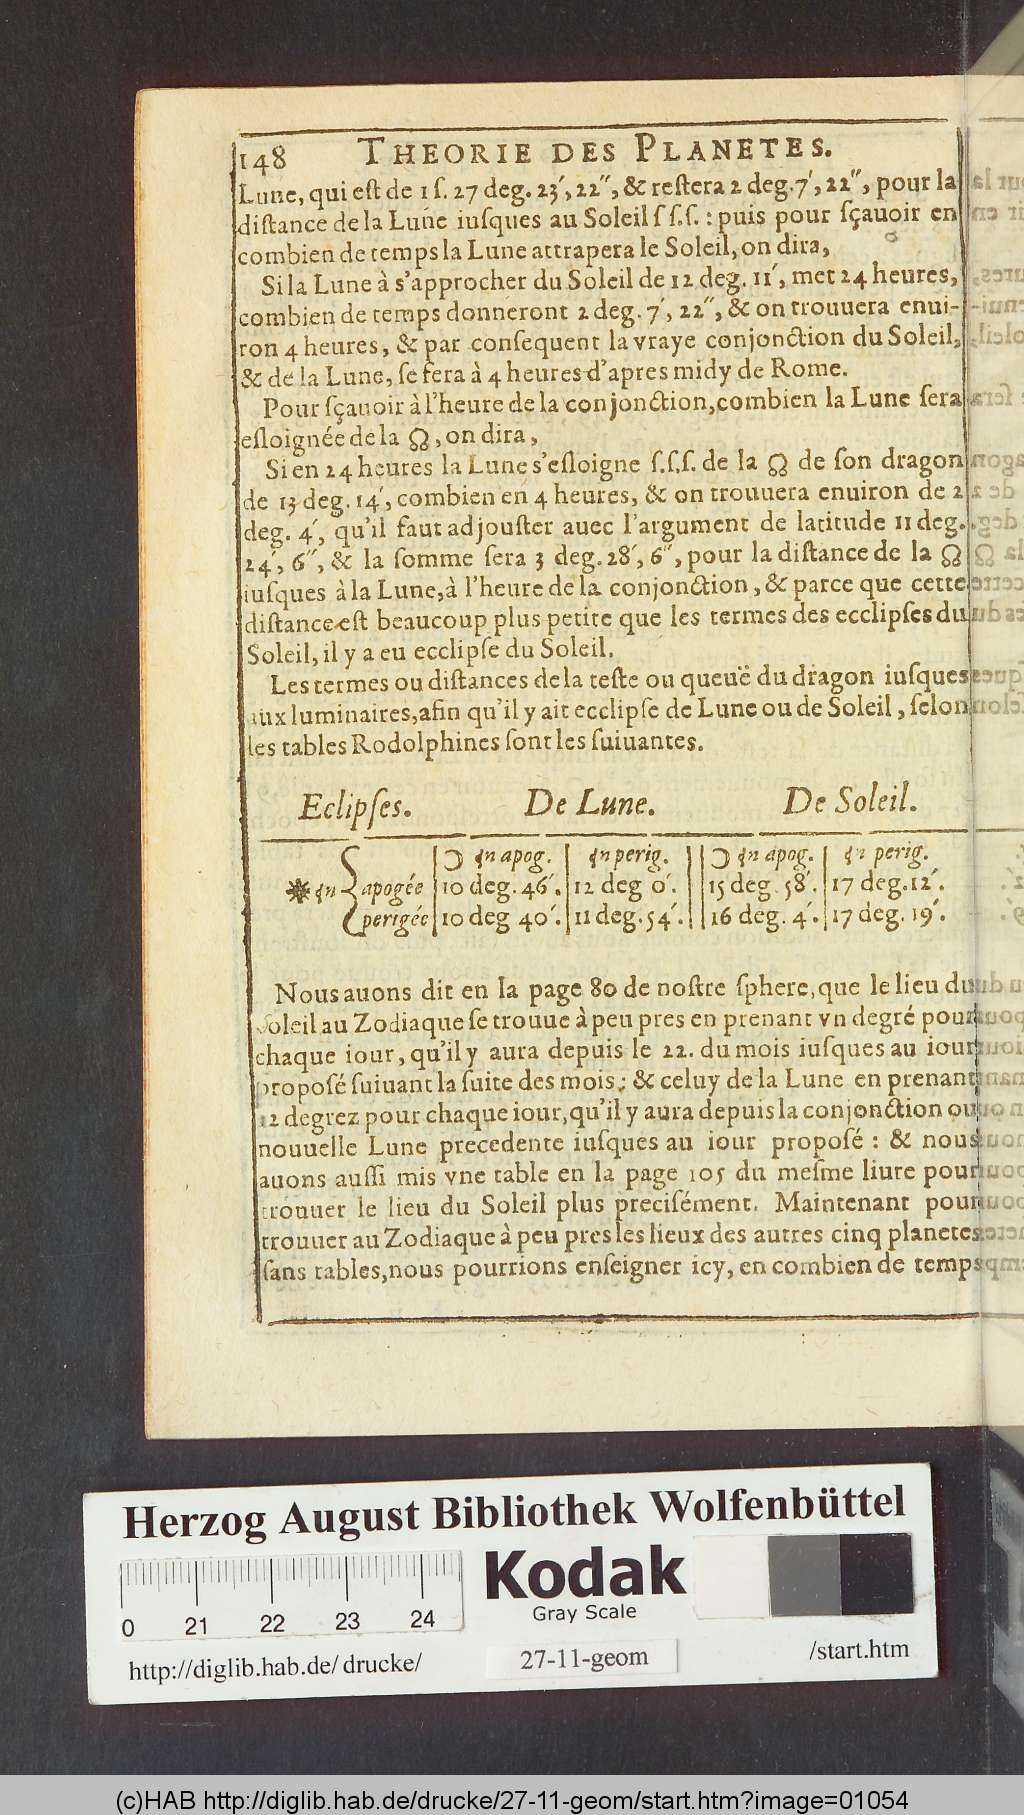 148 THEORIE DES PLANETES.
Lune, qui eſt de 1 ſ. 27 deg. 23′, 22″, & reſtera 2 deg. 7′, 22″, pour la
diſtance de la Lune iuſques au Soleil ſ ſ. ſ. : puis pour ſçauoir en
combien de temps la Lune attrapera le Soleil, on dira,
Si la Lune à s'approcher du Soleil de 12 deg. 11′, met 24 heures,
combien de temps donneront 2 deg. 7′, 22″, & on trouuera enui-
ron 4 heures, & par conſequent la vraye conjonction du Soleil,
& de la Lune, ſe fera à 4 heures d'apres midy de Rome.
Pour ſçauoir à l'heure de la conjonction, combien la Lune ſera
eſloignée de la ☊, on dira,
Si en 24 heures la Lune s'eſloigne ſ. ſ. ſ. de la ☊ de ſon dragon
de 13 deg. 14′, combien en 4 heures, & on trouuera enuiron de 2
deg. 4′, qu'il faut adjouſter auec l'argument de latitude 11 deg.
24′, 6″, & la ſomme ſera 3 deg. 28′, 6″, pour la diſtance de la ☊
iuſques à la Lune, à l'heure de la conjonction, & parce que cette
diſtance eſt beaucoup plus petite que les termes des ecclipſes du
Soleil, il y a eu ecclipſe du Soleil.
Les termes ou diſtances de la teſte ou queuë du dragon iuſques
aux luminaires, afin qu'il y ait ecclipſe de Lune ou de Soleil, ſelon
les tables Rodolphines ſont les ſuiuantes.
Eclipſes. De Lune. De Soleil.
☽ en apog. en perig. ☽ en apog. en perig.
☀ en apogée 10 deg. 46′. 12 deg 0′. 15 deg. 58′. 17 deg. 12′.
perigée 10 deg 40′. 11 deg. 54′. 16 deg. 4′. 17 deg. 19′.
Nous auons dit en la page 80 de noſtre ſphere, que le lieu du
Soleil au Zodiaque ſe trouue à peu pres en prenant vn degré pour
chaque iour, qu'il y aura depuis le 22. du mois iuſques au iour
propoſé ſuiuant la ſuite des mois; & celuy de la Lune en prenant
12 degrez pour chaque iour, qu'il y aura depuis la conjonction ou
nouuelle Lune precedente iuſques au iour propoſé : & nous
auons auſſi mis vne table en la page 105 du meſme liure pour
trouuer le lieu du Soleil plus preciſément. Maintenant pour
trouuer au Zodiaque à peu pres les lieux des autres cinq planetes
ſans tables, nous pourrions enſeigner icy, en combien de temps
Herzog August Bibliothek Wolfenbüttel
Kodak
Gray Scale
0 21 22 23 24
http://diglib.hab.de/ drucke/ 27-11-geom /start.htm
(c)HAB http://diglib.hab.de/drucke/27-11-geom/start.htm?image=01054